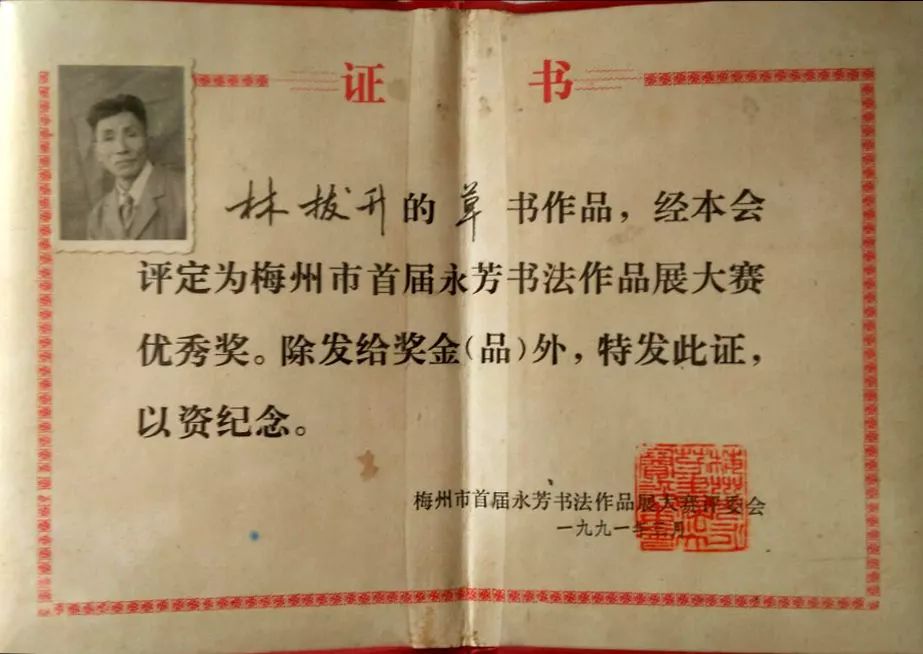 证书
林拔升的草书作品，经本会
评定为梅州市首届永芳书法作品展大赛
优秀奖。除发给奖金(品)外，特发此证，
以资纪念。
梅州市首届永芳书法作品展大赛评委会
一九九一年 月